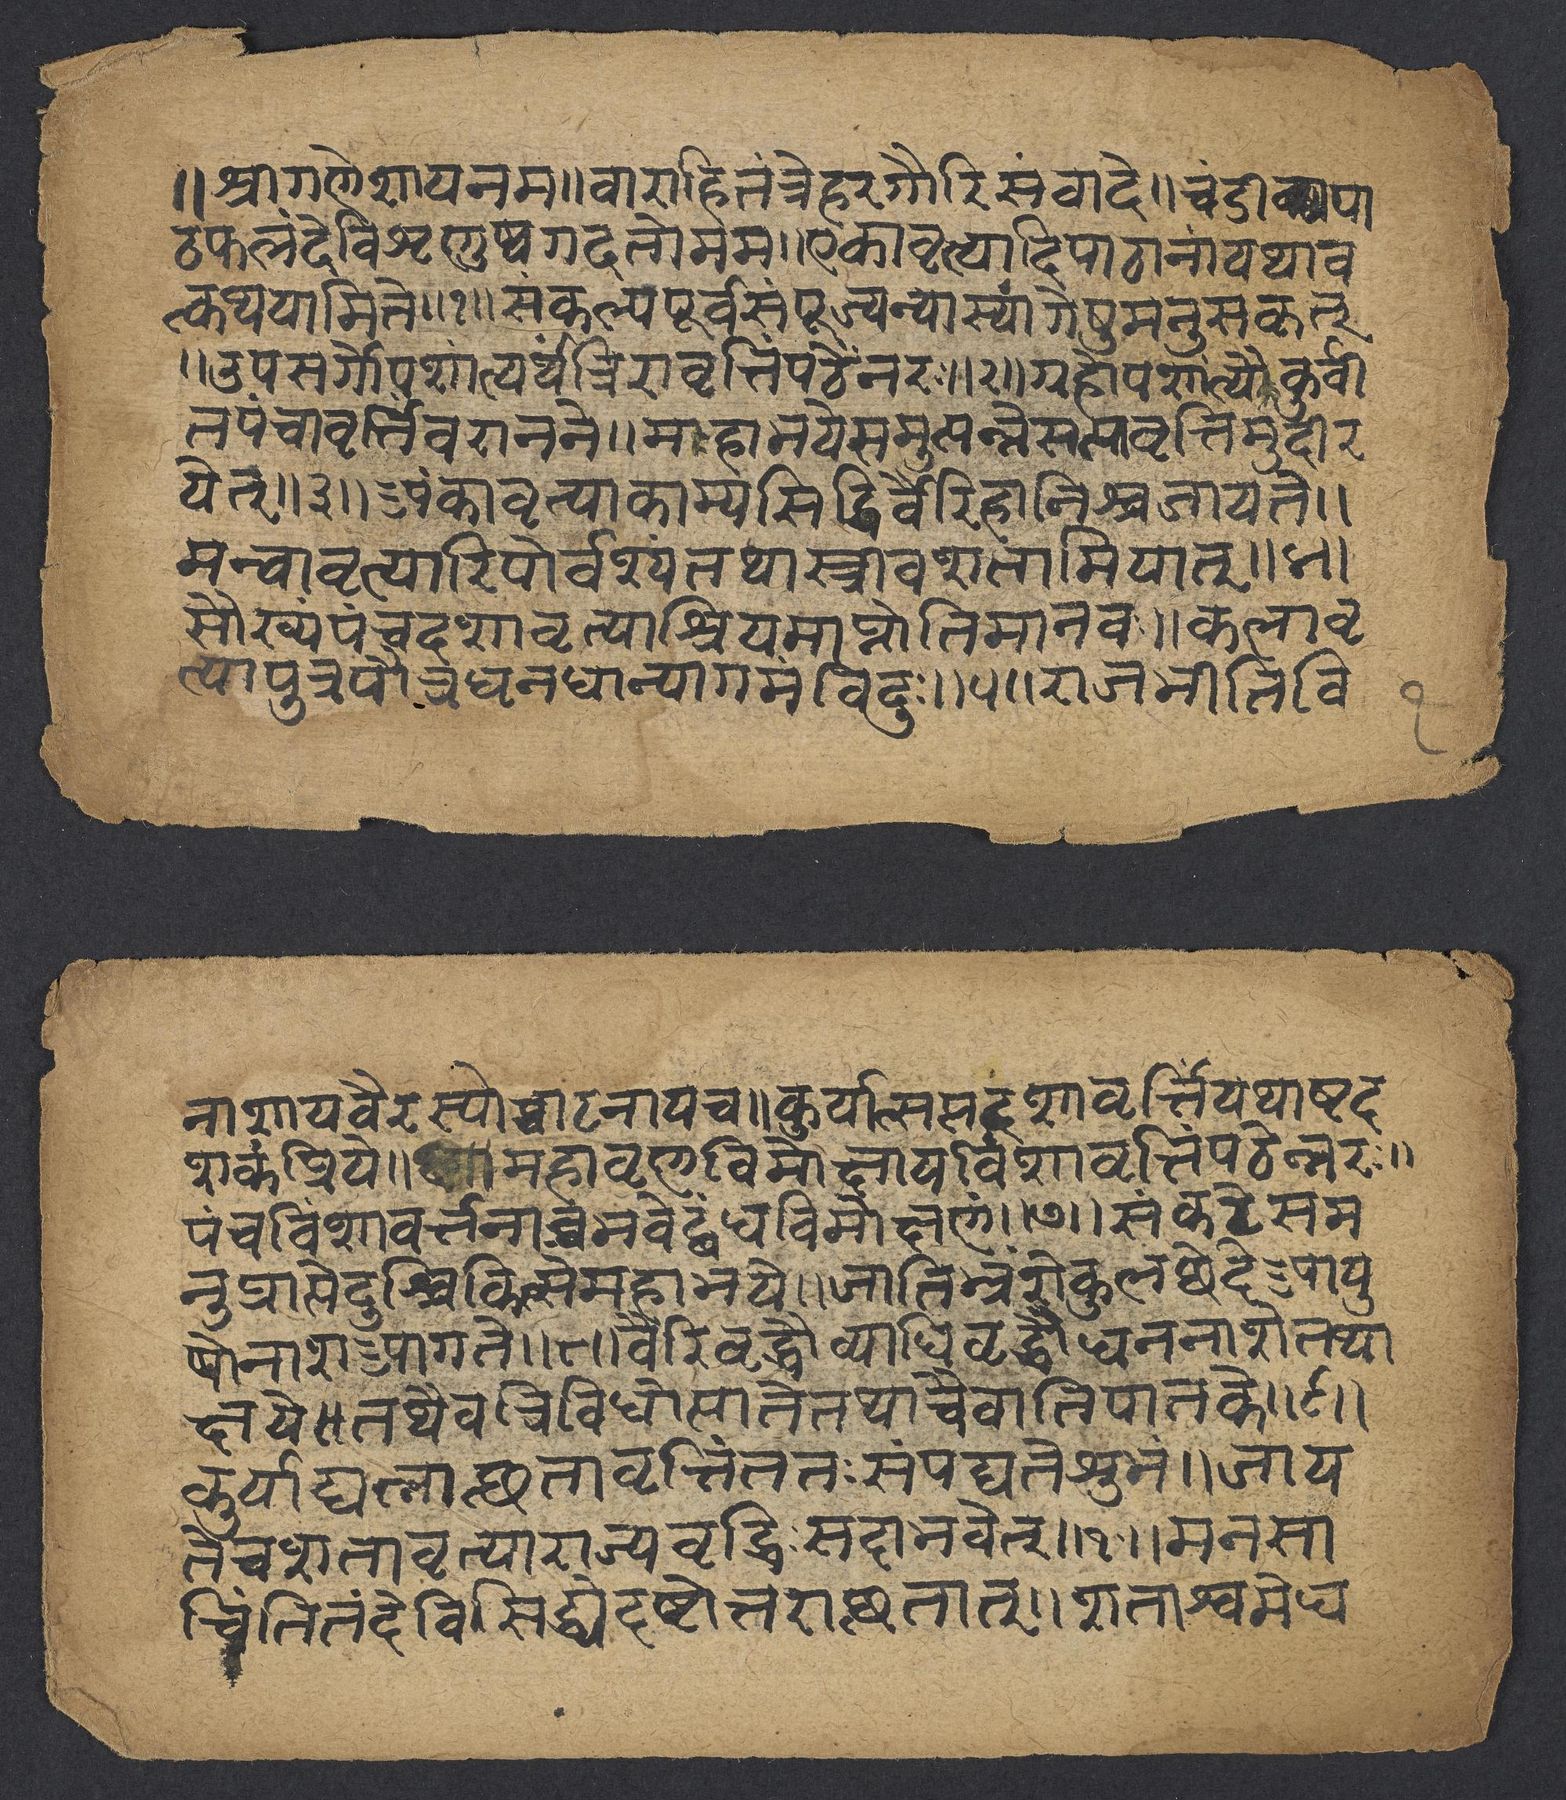 ॥श्रीगणेशायनम॥वाराहितंत्रेहरगौरिसंवादे॥चंडीपा
ठफलंदेविशृणुष्वगदतोमम॥एकावृत्यादिपाठानांयथाव
त्कथयामिते॥१॥संकल्पपूर्वसंपूज्यन्यास्यांगेषुमनुसकृत्
॥उपसर्गोपशांत्यर्थंत्रिरावृत्तिंपठेंनरः॥२॥ग्रहोपशांत्यैकुर्वी
तपंचावृर्त्तिंवरानने॥माहाभयेसमुत्पन्नेसप्तावृत्तिमुदीर
येत्॥३॥ऽर्पकावृत्याकाम्यसिद्धिर्वैरिहानिश्चजायते॥
मन्वावृत्यारिपोर्वश्यंतथास्त्रीवशतामियात्॥४॥
सौख्यंपंचदशावृत्याश्रियमाप्नोतिमानवः॥कलावृ
त्यापुत्रपौत्रधनधान्यागमंविदुः॥५॥राजभीतिवि
१
नाशायवैरस्योच्चाटनायच॥कुर्यात्सप्तदशावृर्त्तिंयथाष्टद
शकंप्रिये॥महावृणविमोक्षायविंशावृत्तिंपठेन्नरः॥
पंचविंशावर्त्तनाच्चभवेद्बंधविमोक्षणं॥७॥संकटेसम
नुप्राप्तेदुश्चिकित्सेमहाभये॥जातिध्वंशेकुलछेदेऽपायु
षोनाशऽपागते॥८॥वैरिवृद्धौव्याधिवृद्धौधननाशेतथा
क्षये॥तथैवत्रिविधोत्पातेतथाचैवातिपातके॥९॥
कुर्याद्यत्नाछतावृत्तिंततःसंपद्यतेशुभं॥जाय
तेचशतावृत्याराज्यवृद्धिःसदाभवेत्॥१०॥मनसा
चिंतितंदेविसिद्ध्येदष्टोत्तराछतात्॥शताश्वमेध